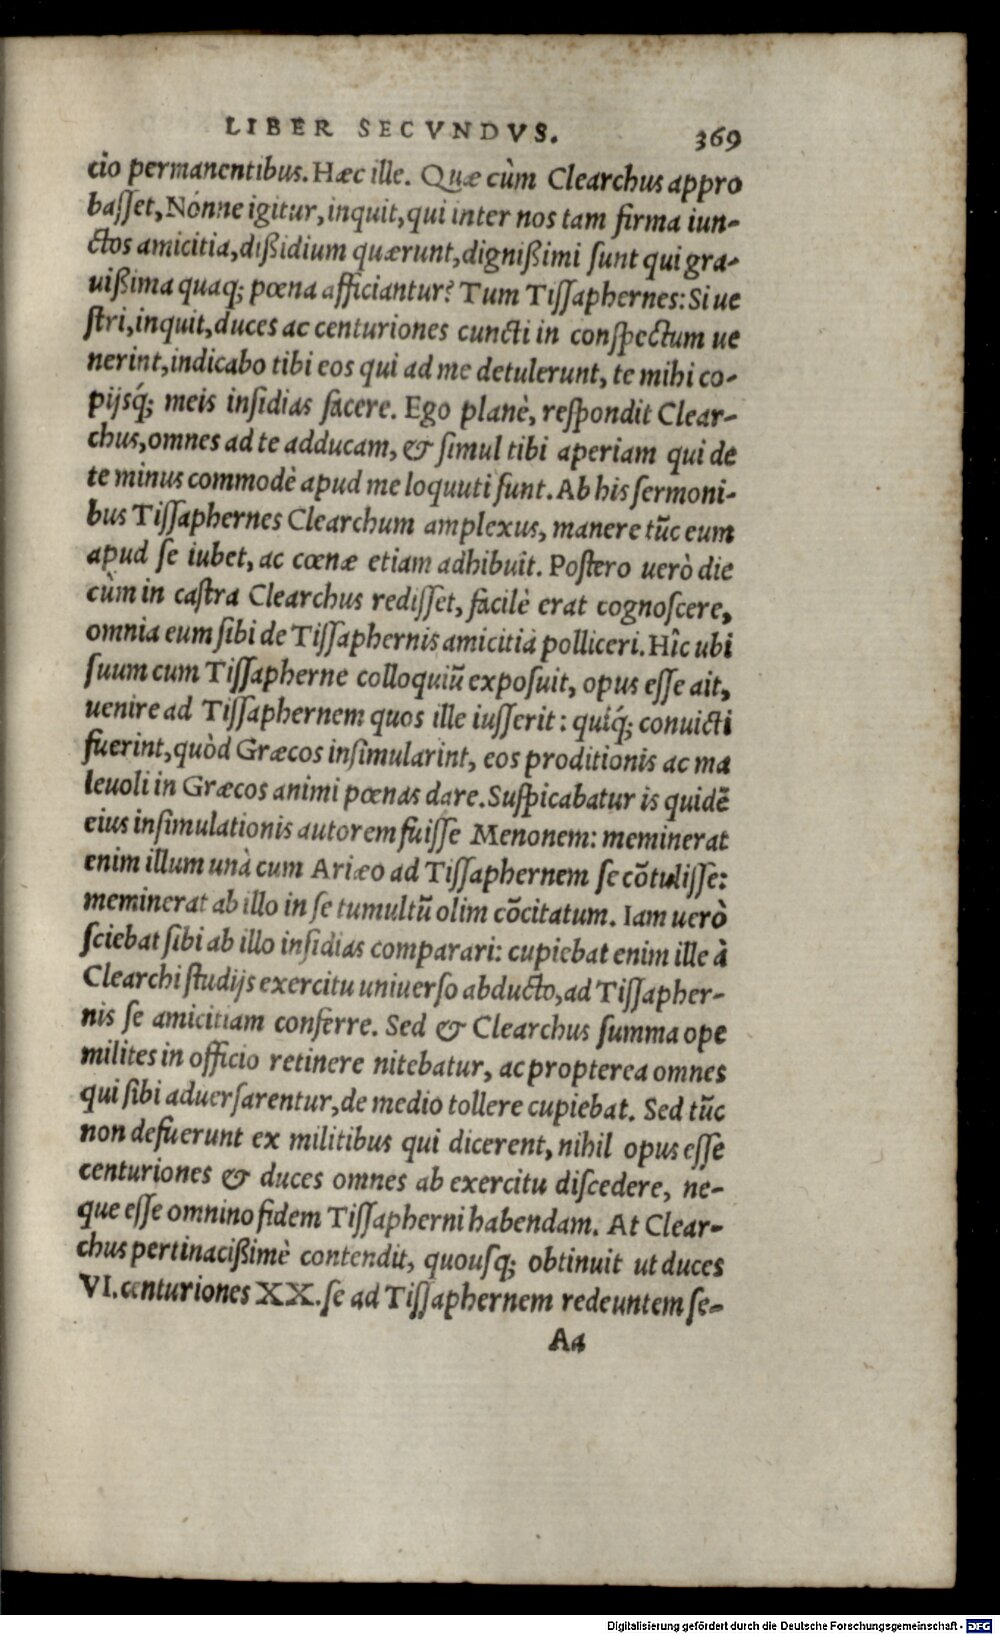 LIBER SECVNDVS. 369
cio permanentibus. Hæc ille. Quæ cùm Clearchus appro
baſſet, Nónne igitur, inquit, qui inter nos tam firma iun-
ctos amicitia, dißidium quærunt, dignißimi ſunt qui gra-
uißima quaq; pœna afficiantur? Tum Tiſſaphernes: Si ue
ſtri, inquit, duces ac centuriones cuncti in conſpectum ue
nerint, indicabo tibi eos qui ad me detulerunt, te mihi co-
pijsq́; meis inſidias facere. Ego planè, reſpondit Clear-
chus, omnes ad te adducam, & ſimul tibi aperiam qui de
te minus commodè apud me loquuti ſunt. Ab his ſermoni-
bus Tiſſaphernes Clearchum amplexus, manere tũc eum
apud ſe iubet, ac cœnæ etiam adhibuit. Poſtero uerò die
cùm in caſtra Clearchus rediſſet, facilè erat cognoſcere,
omnia eum ſibi de Tiſſaphernis amicitia polliceri. Hîc ubi
ſuum cum Tiſſapherne colloquiũ expoſuit, opus eſſe ait,
uenire ad Tiſſaphernem quos ille iuſſerit: quiq́; conuicti
fuerint, quòd Græcos inſimularint, eos proditionis ac ma
leuoli in Græcos animi pœnas dare. Suſpicabatur is quidẽ
eius inſimulationis autorem fuiſſe Menonem: meminerat
enim illum unà cum Ariæo ad Tiſſaphernem ſe cõtuliſſe:
meminerat ab illo in ſe tumultũ olim cõcitatum. Iam uerò
ſciebat ſibi ab illo inſidias comparari: cupiebat enim ille à
Clearchi ſtudijs exercitu uniuerſo abducto, ad Tiſſapher-
nis ſe amicitiam conferre. Sed & Clearchus ſumma ope
milites in officio retinere nitebatur, ac propterea omnes
qui ſibi aduerſarentur, de medio tollere cupiebat. Sed tũc
non defuerunt ex militibus qui dicerent, nihil opus eſſe
centuriones & duces omnes ab exercitu diſcedere, ne-
que eſſe omnino fidem Tiſſapherni habendam. At Clear-
chus pertinacißimè contendit, quouſq; obtinuit ut duces
VI. centuriones XX. ſe ad Tiſſaphernem redeuntem ſe-
Aa
Digitalisierung gefördert durch die Deutsche Forschungsgemeinschaft - DFG